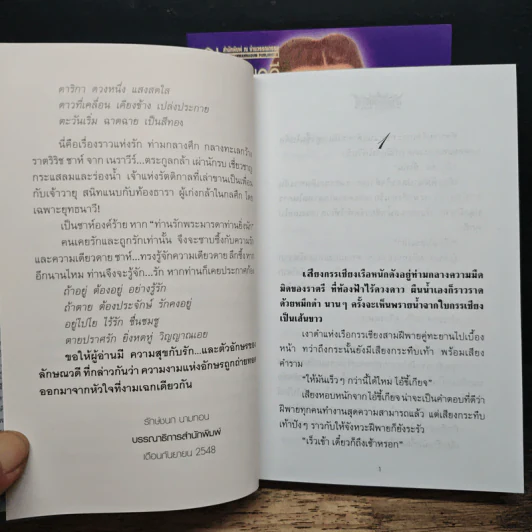 ดาริกา ดวงหนึ่ง แสงสดใส
ดาวที่เคลื่อน เคียงข้าง เปล่งประกาย
ตะวันเริ่ม ฉาดฉาย เป็นสีทอง
นี่คือเรื่องราวแห่งรัก ท่ามกลางศึก กลางทะเลกว้าง
ราตรีริช ชาห์ จาก เนราวีร์...ตระกูลกล้า เผ่านักรบ เชี่ยวชาญ
กระแสลมและร่องน้ำ เจ้าแห่งรัตติกาลที่เล่าขานเป็นเพื่อน
กับเจ้าวายุ สนิทแนบกับท้องธารา ผู้เก่งกล้าในกลศึก โดย
เฉพาะยุทธนาวี!
เป็นชาห์องค์ร้าย หาก "ท่านรักพระมารดาท่านยิ่งนัก"
คนเคยรักและถูกรักเท่านั้น จึงจะซาบซึ้งกับความรัก
และความเดียวดาย ชาห์...ทรงรู้จักความเดียวดาย ลึกซึ้ง
อีกนานไหม ท่านจึงจะรู้จัก...รัก หากท่านก็เคยประกาศ
ถ้าอยู่ ต้องอยู่ อย่างรู้รัก
ถ้าตาย ต้องประจักษ์ รักคงอยู่
อยู่ไปใย ไร้รัก ชื่นชมชู
ตายปราศรัก ยิ่งหดหู่ วิญญาณเอย
ขอให้ผู้อ่านมี ความสุขกับรัก...และตัวอักษรของ
ลักษณวดี ที่กล่าวกันว่า ความงามแห่งอักษรถูกถ่ายทอด
ออกมาจากหัวใจที่งามเฉกเดียวกัน
รักษ์ชนก นามทอน
บรรณาธิการสำนักพิมพ์
เดือนกันยายน 2548
1
เสียงกรรเชียงเรือหนักดังอยู่ท่ามกลางความมืด
มิดของราตรี ที่ท้องฟ้าไร้ดวงดาว ผืนน้ำเองก็ราวราด
ด้วยหมึกดำ นานๆ ครั้งจะเห็นพรายน้ำจากใบกรรเชียง
เป็นเส้นขาว
เงาดำแห่งเรือกรรเชียงสามฝีพายคู่ทะยานไปเบื้อง
หน้า ทว่าถึงกระนั้นยังมีเสียงกระทืบเท้า พร้อมเสียง
คำราม
"ให้มันเร็วๆ กว่านี้ได้ไหม ไอ้ขี้เกียจ"
เสียงหอบหนักจากไอ้ขี้เกียจน่าจะเป็นคำตอบที่ดีว่า
ฝีพายทุกคนทำงานสุดความสามารถแล้ว แต่เสียงกระทืบ
เท้าปังๆ ราวกับให้จังหวะฝีพายก็ยังระรัว
"เร็วเข้า เดี๋ยวก็ถึงเช้าหรอก"
1